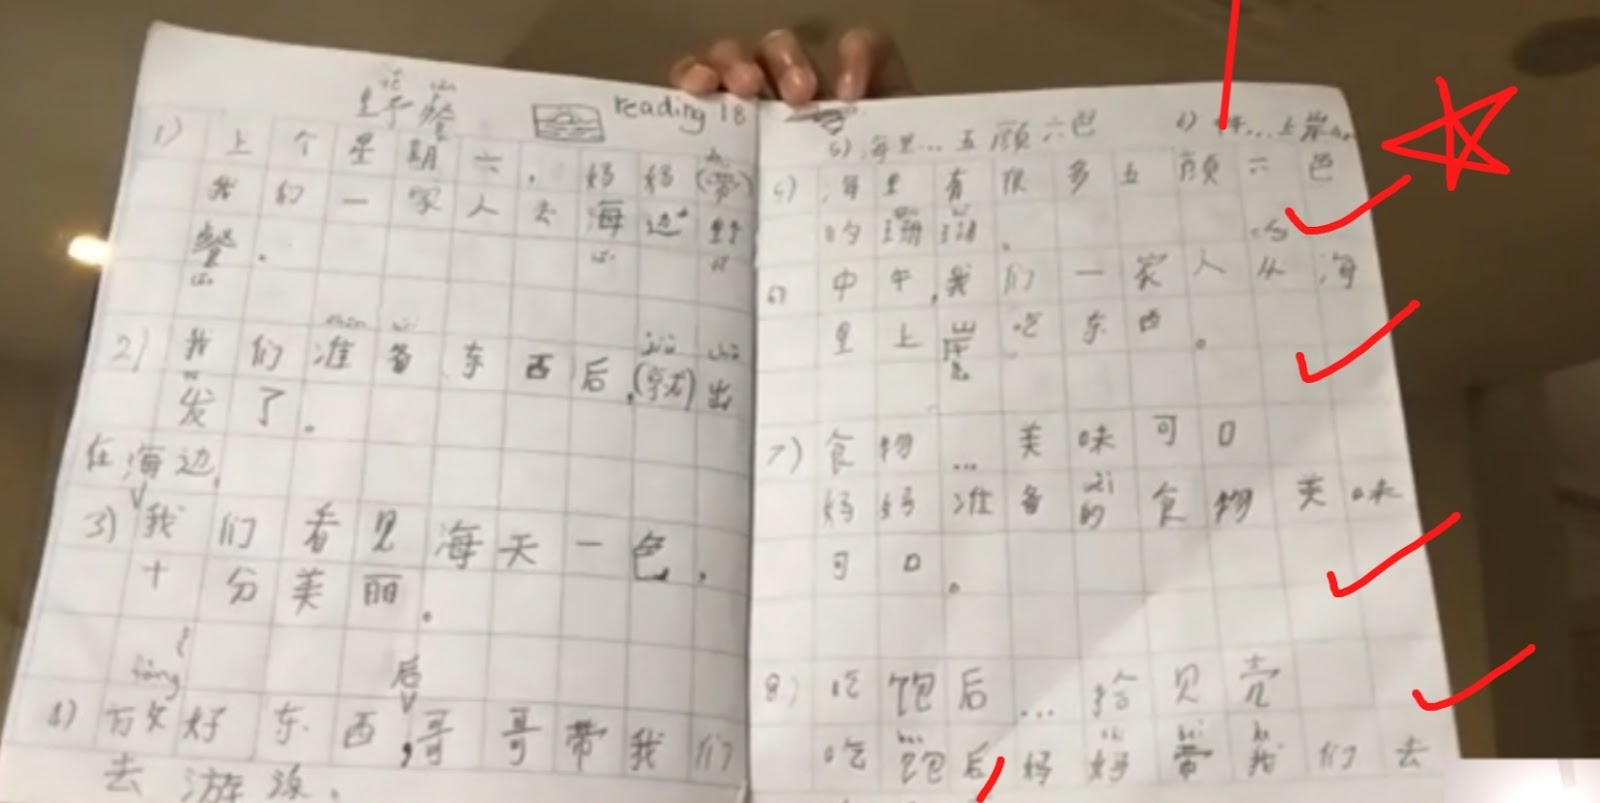 野餐
reading 18
1) 上个星期六,妈妈(带)
我们一家人去海边野
餐。
zhǔn
2) 我们准备东西后,(就) chū 出
发了。
在海边,
3) 我们看见海天一色,
十分美丽。
fàng
后
4) 放好东西,哥哥带我们
去游泳。
5) 海里...五颜六色
6) 中午...上岸
5) 海里有很多五颜六色
的珊瑚。
6) 中午,我们一家人从海
里上岸吃东西。
7) 食物...美味可口
妈妈准备的食物美味
可口。
8) 吃饱后...拾贝壳
吃饱后妈妈带我们去